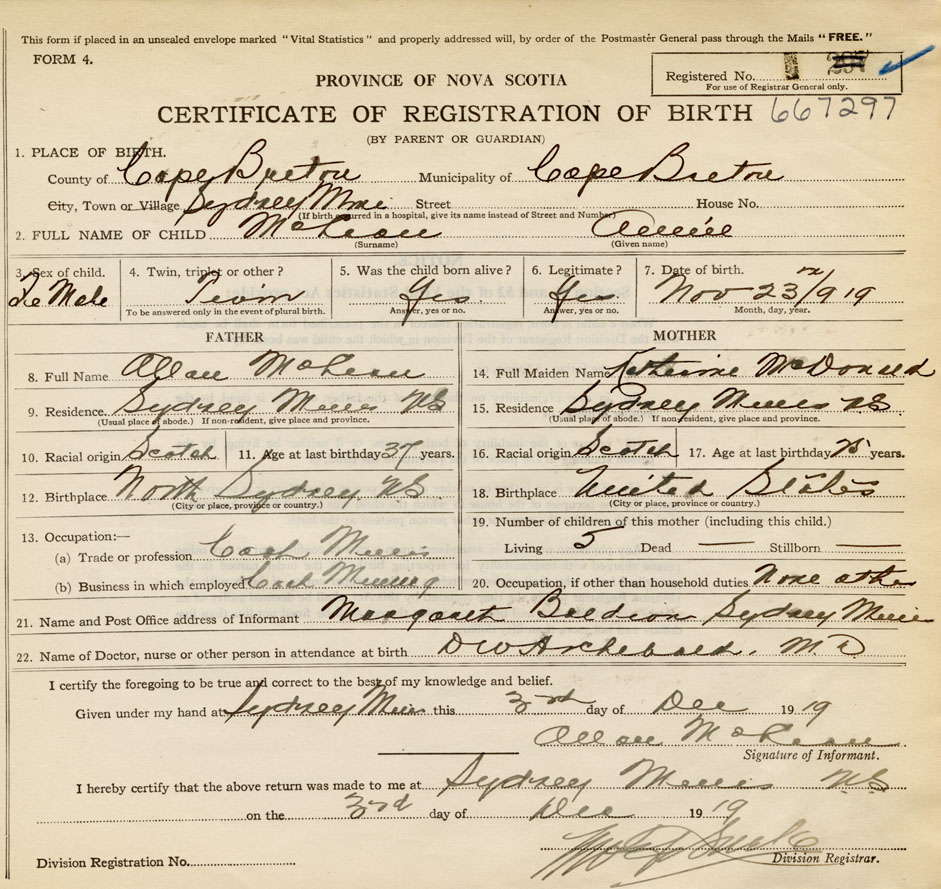 This form if placed in an unsealed envelope marked "Vital Statistics" and properly addressed will, by order of the Postmaster General pass through the Mails "FREE."
FORM 4.
Registered No.
For use of Registrar General only.
PROVINCE OF NOVA SCOTIA
CERTIFICATE OF REGISTRATION OF BIRTH 667297
(BY PARENT OR GUARDIAN)
1. PLACE OF BIRTH.
County of Cape Breton Municipality of Cape Breton
City, Town or Village Sydney Mines Street House No.
(If birth occurred in a hospital, give its name instead of Street and Number)
2. FULL NAME OF CHILD McLean Annie
(Surname) (Given name)
3. Sex of child. 4. Twin, triplet or other? 5. Was the child born alive? 6. Legitimate? 7. Date of birth.
FeMale Twin Yes Yes Nov 23 1919
To be answered only in the event of plural birth. Answer, yes or no. Answer, yes or no. Month, day, year.
FATHER MOTHER
8. Full Name Allan McLean 14. Full Maiden Name Katherine McDonald
9. Residence. Sydney Mines NS 15. Residence Sydney Mines NS
(Usual place of abode.) If non-resident, give place and province. (Usual place of abode.) If non-resident, give place and province.
10. Racial origin Scotch 11. Age at last birthday 37 years. 16. Racial origin Scotch 17. Age at last birthday years.
12. Birthplace North Sydney NS 18. Birthplace United States
(City or place, province or country.) (City or place, province or country.)
13. Occupation:— 19. Number of children of this mother (including this child.)
(a) Trade or profession Coal Living 5 Dead — Stillborn —
(b) Business in which employed Coal Mining 20. Occupation, if other than household duties None other
21. Name and Post Office address of Informant Margaret Sydney Mines
22. Name of Doctor, nurse or other person in attendance at birth DW Archibald. M.D
I certify the foregoing to be true and correct to the best of my knowledge and belief.
Given under my hand at Sydney Mines this 3rd day of Dec 1919
Allan McLean
Signature of Informant.
I hereby certify that the above return was made to me at Sydney Mines N.S
on the 3rd day of Dec 1919
Division Registration No. Division Registrar.